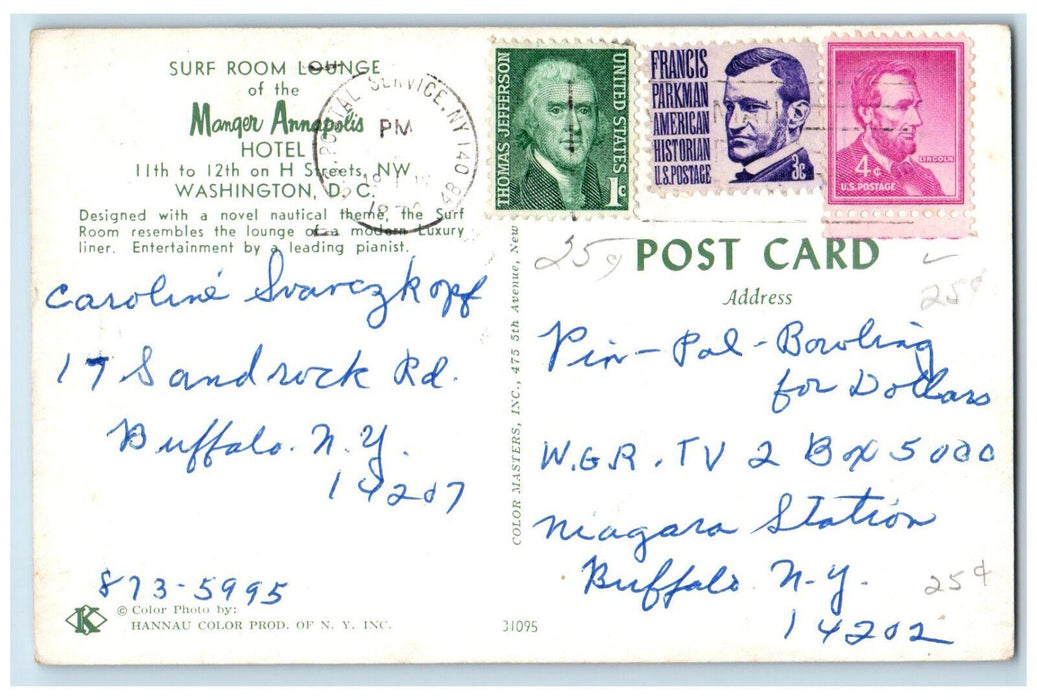 SURF ROOM LOUNGE
of the
Manger Annapolis
HOTEL
11th to 12th on H Streets, NW
WASHINGTON, D. C.
Designed with a novel nautical theme, the Surf
Room resembles the lounge of a modern Luxury
liner. Entertainment by a leading pianist.
POSTAL SERVICE, NY 140
PM
THOMAS JEFFERSON
UNITED STATES
1¢
FRANCIS
PARKMAN
AMERICAN
HISTORIAN
U.S. POSTAGE
3¢
4¢
LINCOLN
U.S. POSTAGE
25¢
POST CARD
Address
25¢
Caroline Svarczkopf
17 Sandrock Rd.
Buffalo. N.Y.
14207
873-5995
© Color Photo by:
HANNAU COLOR PROD. OF N. Y. INC.
K
COLOR MASTERS, INC., 475 5th Avenue, New
31095
Pin-Pal-Bowling
for Dollars
W.G.R. TV 2 Box 5000
Niagara Station
Buffalo. N-Y.
14202
25¢